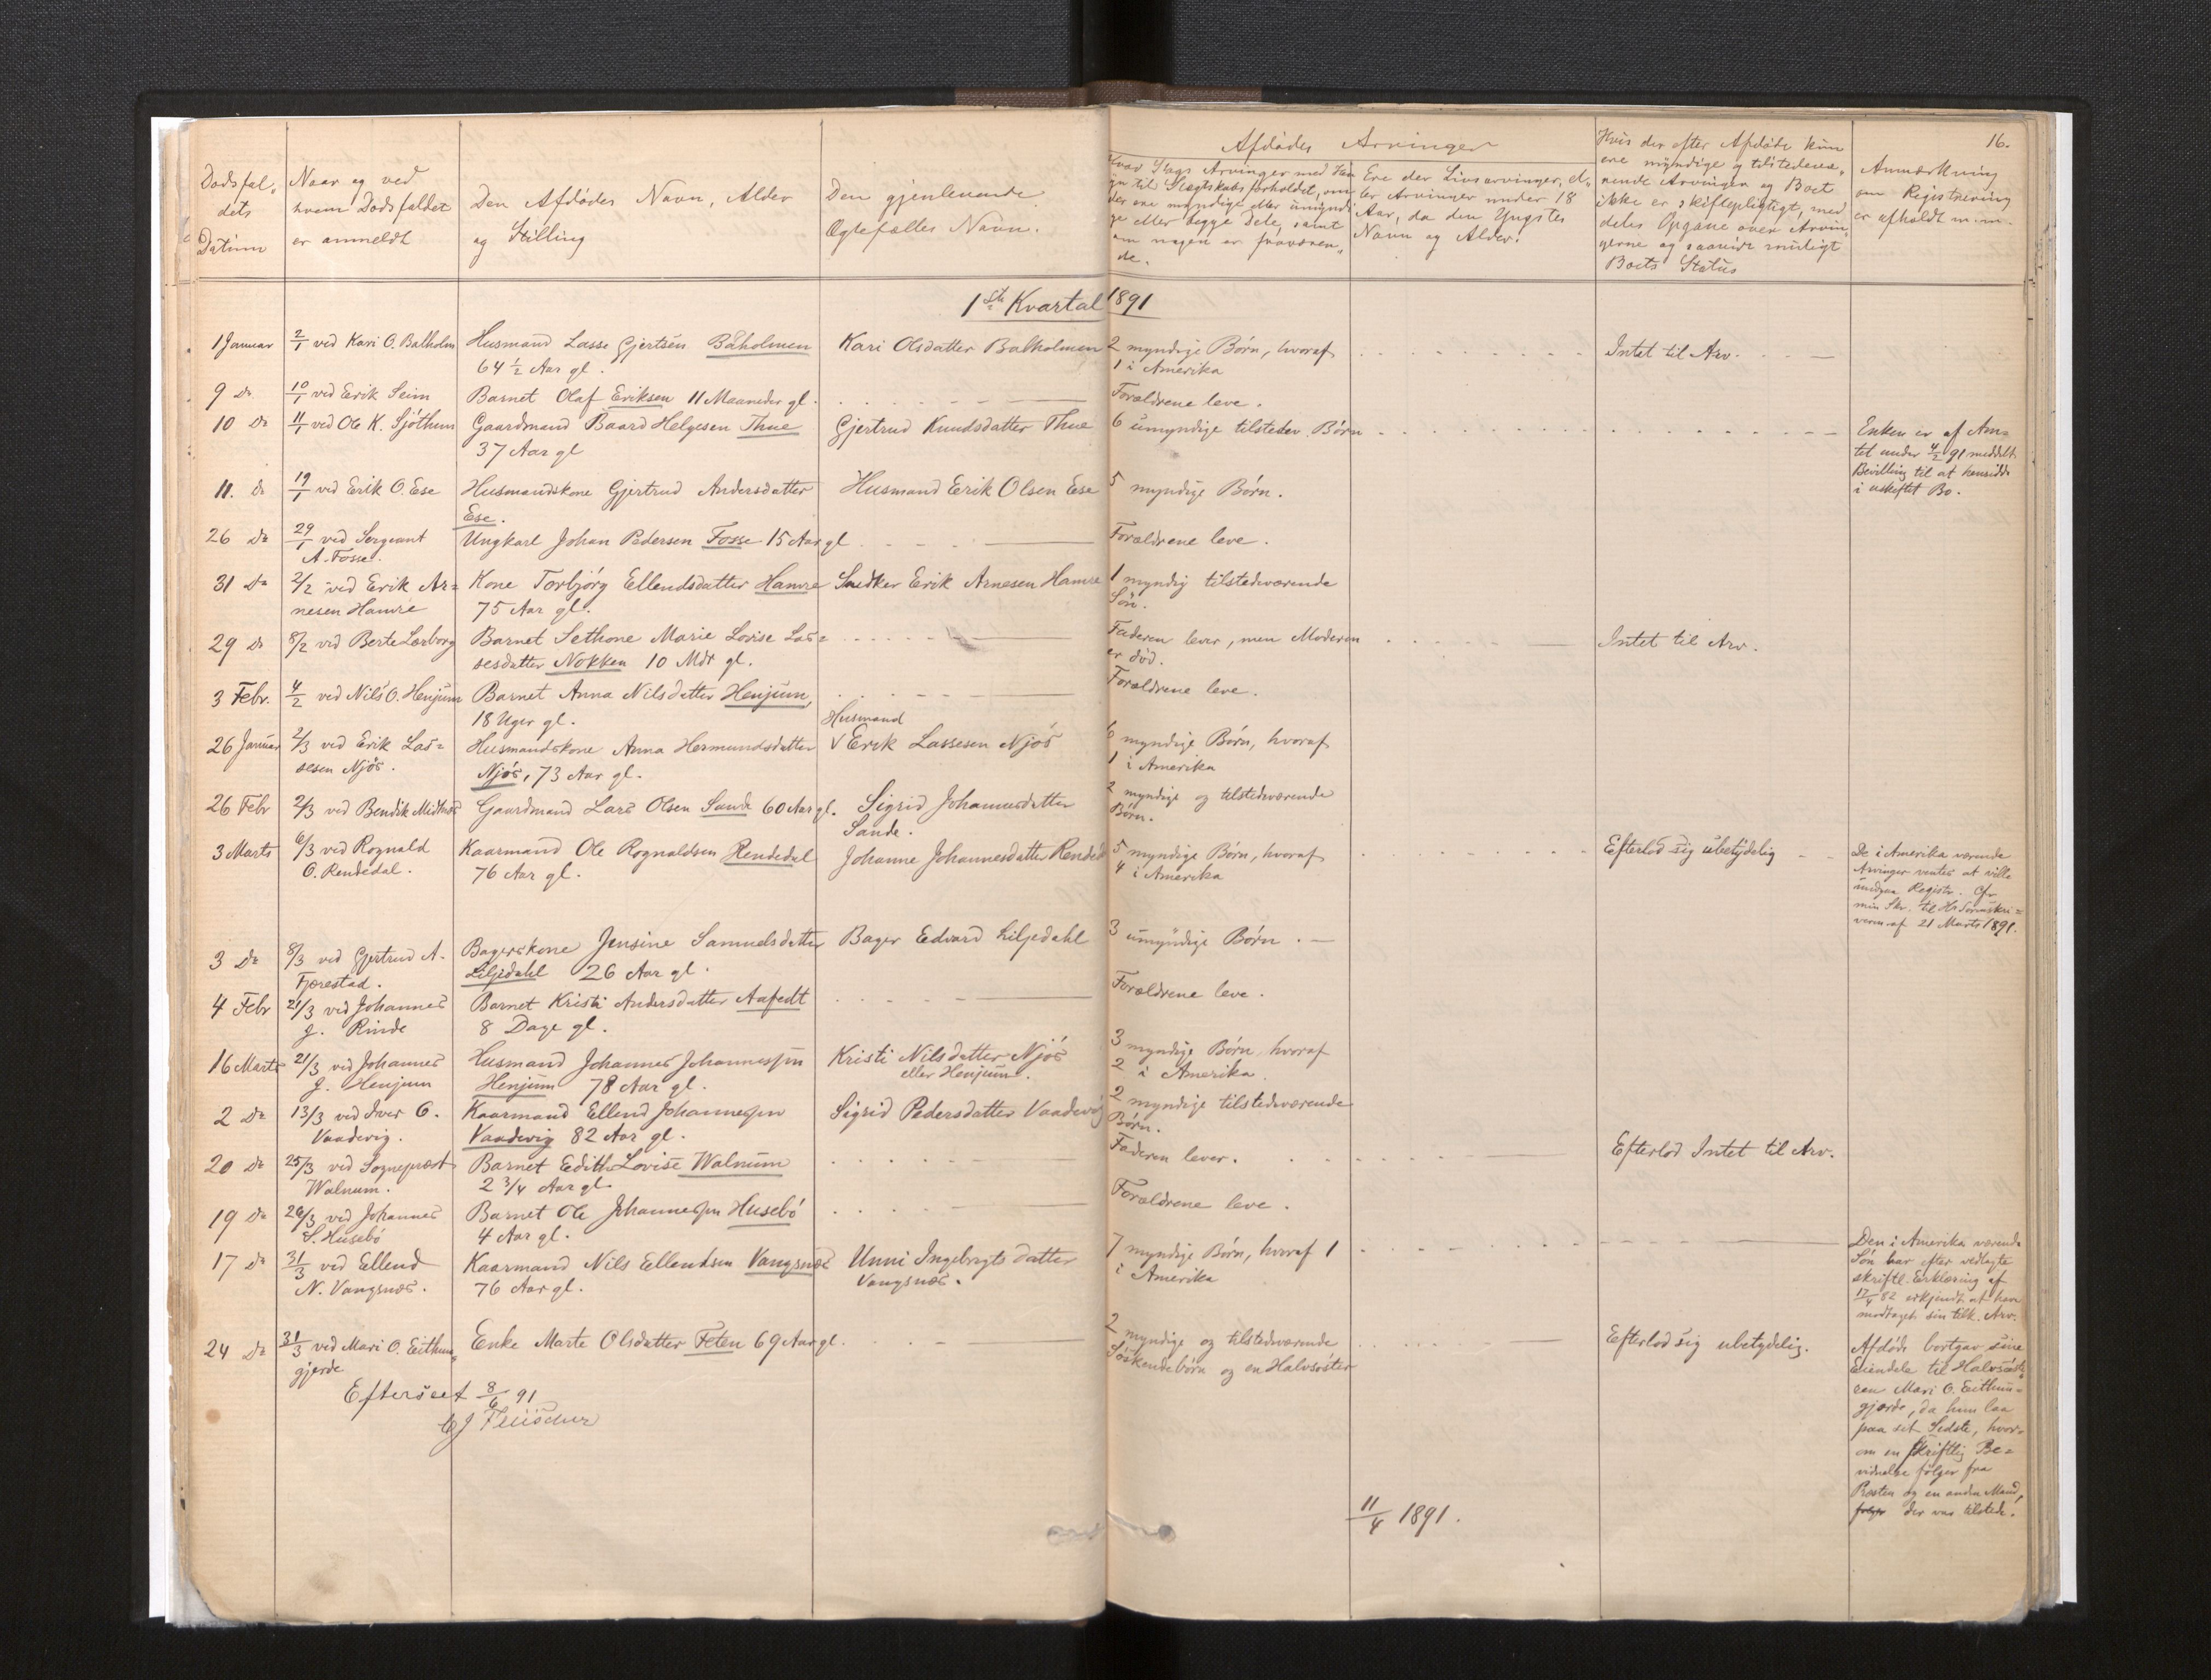 16.
Dødsfal„
dets
Datum
Naar og ved
hvem Dødsfaldet
er anmeldt
Den Afdødes Navn, Alder
og Stilling
Den gjenlevende
Ægtefælles Navn.
Afdødes Arvinger
Hvad Slags Arvinger med Hen
syn til Slægtskabsforholdet, om
der ere myndige eller umyndi
ge eller begge Dele, samt
om nogen er fraværen„
de.
Ere der Livsarvinger, el„
ler Arvinger under 18
Aar, da den Yngstes
Navn og Alder.
Hvis der efter Afdøde kun
ere myndige og tilstedevæ„
rende Arvinger og Boet
ikke er skiftepligtigt, med
deles Opgave over Arvin„
gerne og saavidt muligt
Boets Status
Anmærkning
om Registrering
er afholdt m.m.
1ste Kvartal 1891
1 Januar 2/1 ved Kari O. Balholm Husmand Lasse Gjertsen Balholmen Kari Olsdatter Balholmen 2 myndige Børn, hvoraf Intet til Arv.
64 1/2 Aar gl. 1 i Amerika
9 Do 10/1 ved Erik Seim Barnet Olaf Eriksen 11 Maaneder gl. Forældrene leve.
10 Do 11/1 ved Ole K. Sjøthun Gaardmand Baard Helgesen Thue Gjertrud Knudsdatter Thue 6 umyndige tilstedev. Børn Enken er af Am=
37 Aar gl tet under 4/2 91 meddelt
Bevilling til at hensidde
i uskiftet Bo.
11. Do 19/1 ved Erik O. Ese Husmandskone Gjertrud Andersdatter Husmand Erik Olsen Ese 5 myndige Børn.
Ese.
26 Do 29/1 ved Sergeant Ungkarl Johan Pedersen Fosse 15 Aar gl Forældrene leve.
A. Fosse.
31 Do 2/2 ved Erik Ar= Kone Torbjørg Ellendsdatter Hamre Snedker Erik Arnesen Hamre 1 myndig tilstedeværende
nesen Hamre 75 Aar gl. Søn.
29 Do 8/2 ved Berte Lærborg Barnet Sethone Marie Lovise Las= Faderen lever, men Moderen Intet til Arv.
sesdatter Nokken 10 Mdr gl. er død.
3 Febr. 4/2 ved Nils O. Henjum Barnet Anna Nilsdatter Henjum, Forældrene leve.
18 Uger gl.
Husmand
26 Januar 2/3 ved Erik Las= Husmandskone Anna Hermundsdatter V Erik Lassesen Njøs 6 myndige Børn, hvoraf
sesen Njøs. Njøs, 73 Aar gl. 1 i Amerika
26 Febr 2/3 ved Bendik Midthus Gaardmand Lars Olsen Sande 60 Aar gl. Sigrid Johannesdatter 2 myndige og tilstedeværende
Sande. Børn.
3 Marts 6/3 ved Rognald Kaarmand Ole Rognaldsen Rendedal Johanne Johannesdatter Rended 5 myndige Børn, hvoraf Efterlod sig ubetydelig De i Amerika værende
O. Rendedal. 76 Aar gl. 4 i Amerika Arvinger ventes at ville
undgaa Registr. Cfr
min Skr. til Hr Sorenskri=
veren af 21 Marts 1891.
3 Do 8/3 ved Gjertrud A. Bagerskone Jensine Samuelsdatter Bager Edvard Liljedahl 3 umyndige Børn.
Fjærestad. Liljedahl 26 Aar gl.
4 Febr 21/3 ved Johannes Barnet Kristi Andersdatter Aafedt Forældrene leve.
J. Rinde 8 Dage gl.
16 Marts 21/3 ved Johannes Husmand Johannes Johannessen Kristi Nilsdatter Njøs 3 myndige Børn, hvoraf
J. Henjum Henjum 78 Aar gl. eller Henjum. 2 i Amerika.
2 Do 13/3 ved Iver E. Kaarmand Ellend Johannessen Sigrid Pedersdatter Vaadevig 2 myndige tilstedeværende
Vaadevig. Vaadevig 82 Aar gl. Børn.
20 Do 25/3 ved Sogneprest Barnet Edith Lovise Walnum Faderen lever. Efterlod Intet til Arv.
Walnum. 2 3/4 Aar gl.
19 Do 26/3 ved Johannes Barnet Ole Johannessen Husebø Forældrene leve.
S. Husebø 4 Aar gl.
17 Do 31/3 ved Ellend Kaarmand Nils Ellendsen Vangsnæs Unni Ingebrigtsdatter 7 myndige Børn, hvoraf 1 Den i Amerika værende
N. Vangsnæs. 76 Aar gl. Vangsnæs. i Amerika Søn har efter vedlagte
skriftl. Erklæring af
17/4 82 erkjendt at have
modtaget sin tilk. Arv.
24 Do 31/3 ved Mari O. Eithun„ Enke Marte Olsdatter Feten 69 Aar gl. 2 myndige og tilstedeværende Efterlod sig ubetydelig. Afdøde bortgav sine
gjerde Søskendebørn og en Halvsøster Eiendele til Halvsøste„
ren Mari O. Eithun=
gjærde, da hun laa
paa sit Sidste, hvor=
om en skriftlig Be=
vidnelse følger fra
Præsten og en anden Mand,
følger der var tilstede.
Efterseet 8/6 91
11/4 1891.